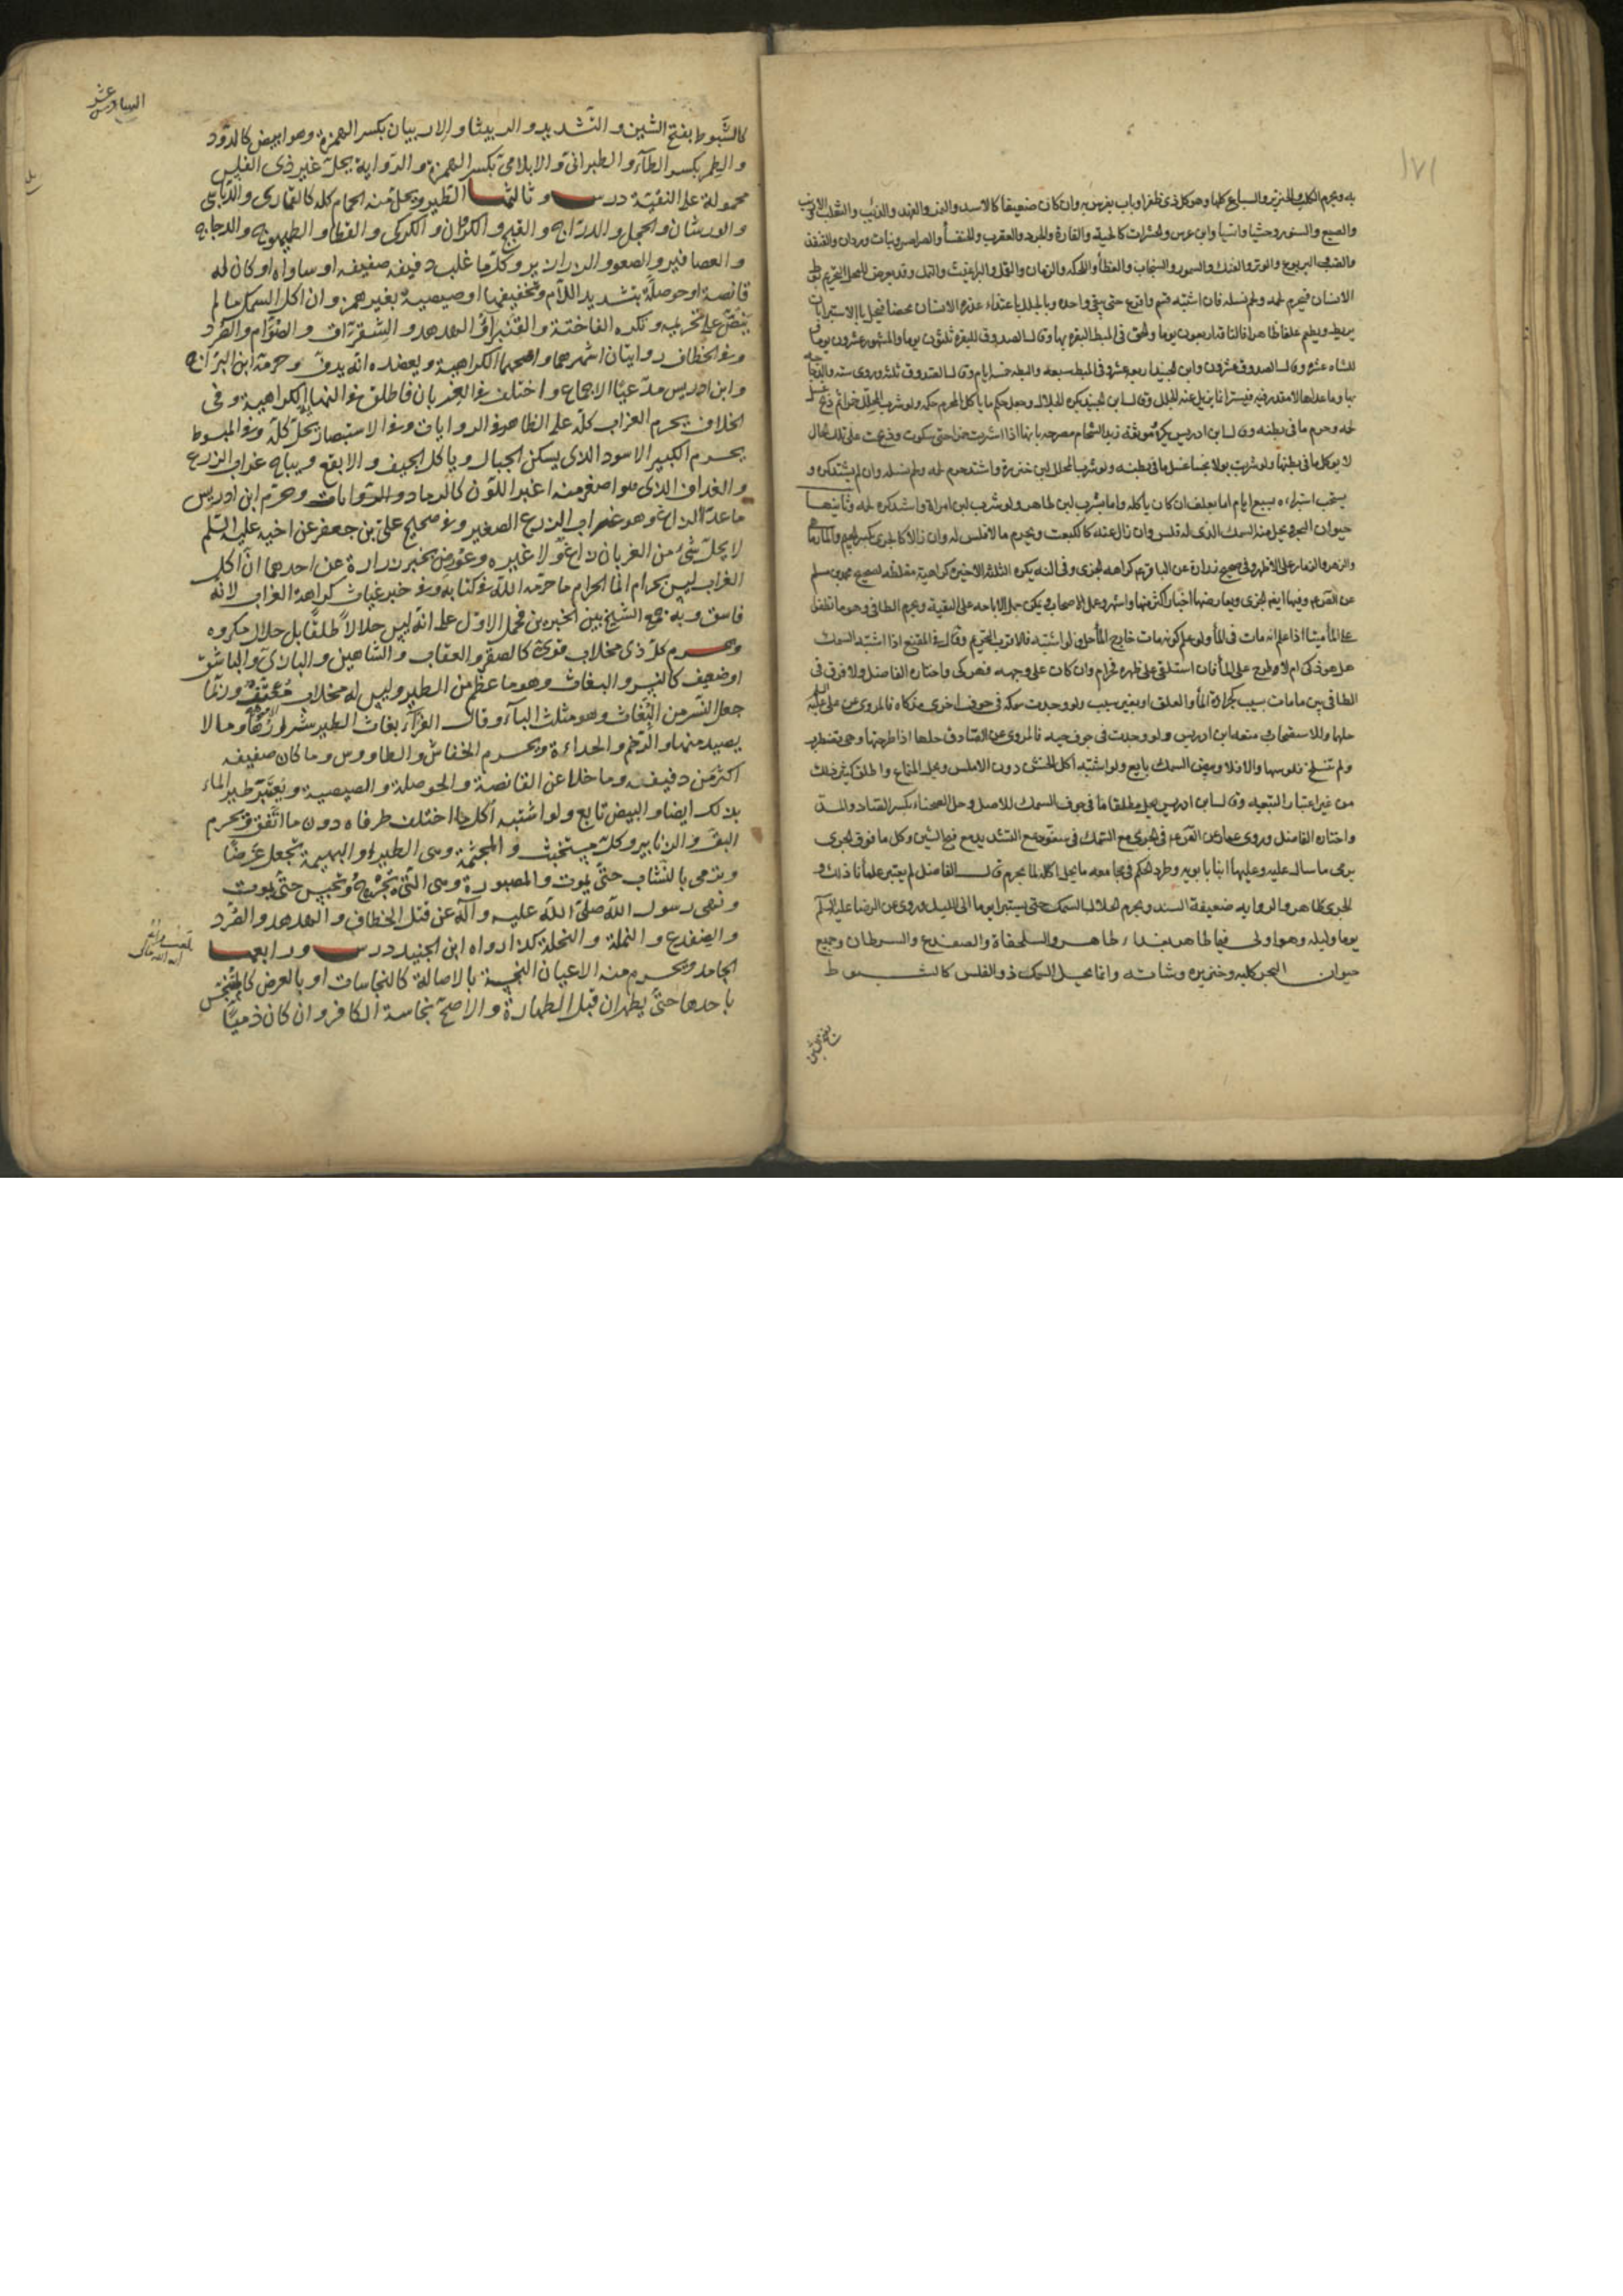 ١٧١
به ويحرم الكلب والخنزير والسباع كلها وهو كل ذي ظفر او ناب يفرس به وان كان ضعيفا كالاسد والنمر والفهد والذئب والثعلب والارنب
والضبع والسنور وحشيا وانسيا وابن عرس والحشرات كالحية والفارة والجرد والعقرب والخنفسا والصراصر وبنات وردان والقنفذ
والضب واليربوع والوبر والفنك والسمور والسنجاب والعظاء واللحكة والقمل والبراغيث والنمل وقد يعرض للمحلل التحريم بوطى
الانسان فيحرم لحمه ولحم نسله فان اشتبه قسم واقرع حتى يبقى واحده وبالجلل باغتذاء عذرة الانسان محضا فيحل بالاستبراء بان
يربط ويطعم علفا طاهرا فالناقة اربعون يوما والحق في المبسط البقرة بها وقال الصدوق للبقرة ثلثون يوما والمشهور عشرون يوما
للشاة عشرة وقال الصدوق عشرون وابن الجنيد اربعة عشر وفي المبسط سبعة والبطة خمسة ايام وقال الصدوق ثلثة وروى ستة والدجاجة
بها وما عداها لا مقدر فيه فيستبرا بما يزيل عنه الجلل وقال ابن الجنيد يكره الجلال وجعل حكم ما ياكل المحرم حكمه ولو شرب المحلل خمرا ثم ذبح غسل
لحمه وحرم ما في بطنه وقال ابن ادريس يكره وموثقة زيد الشحام مصرحة بانها اذا شربت خمرا حتى سكرت وذبحت على تلك الحال
لا يوكل ما في بطنها ولو شربت بولا نجسا غسل ما في بطنه ولو شرب المحلل لبن خنزيرة واشتد حرم لحمه ولحم نسله وان لم يشتد كره و
يستحب استبراءه بسبع ايام اما بعلف ان كان ياكله واما بشرب لبن طاهر ولو شرب لبن امراة واشتد كره لحمه وثانيها
حيوان البحر ويحل منه السمك الذي له فلس وان زال عنه كالكنعت ويحرم ما لا فلس له وان زال كالجري بكسر الجيم والمارماهي
والزهو والزمار على الاظهر وفي صحيح زرارة عن الباقر ع كراهه الجري وفي النهاية يكره الثلثة الاخيرة كراهية مغلظة لصحيح محمد بن مسلم
عن الصادق ع وفيها ايضا الجري ويعارضها اخبار اكثر منها واشهر وعمل الاصحاب ويمكن حمل الاباحه على التقية ويحرم الطافي وهو ما يطفو
على الماء ميتا اذا علم انه مات في الماء ولو علم كونه مات خارج الماء حل ولو اشتبه فالاقرب التحريم وقال في المقنع اذا اشتبه السمك
هل هو ذكي ام لا وطرح على الماء فان استلقى على ظهره فحرام وان كان على وجهه فهو ذكي واختاره الفاضل ولا فرق في
الطافي بين ما مات بسبب كحرارة الماء والعلق او بغير سبب ولو وجدت سمكه في جوف اخرى مذكاه فالمروي عن علي عليه السلم
حلها وللاستصحاب منعه ابن ادريس ولو وجدت في جوف حية فالمروي عن الصادق حلها اذا طرحتها وهي تضطرب
ولم تنسلخ فلوسها والا فلا وبيض السمك تابع ولو اشتبه اكل الخشن دون الاملس ويحل المقناع واطلق كثير ذلك
من غير اعتبار التبعيه وقال ابن ادريس يحل مطلقا ما في جوف السمك للاصل وحل الصحناه بكسر الصاد والمد
واختاره الفاضل وروى عمار عن الصادق ع في الجري مع السمك في سفود مع التشديد
الجري طاهر والرواية ضعيفة السند ويحرم الجلال السمك حتى يستبرا يوما الى الليل وروى عن الرضا عليه السلم
يوما وليله وهو اولى فيما طاهر بغذاء طاهر والسلحفاة والضفدع والسرطان وجميع
حيوان البحر كلبه وخنزيره وشاته وانما يحل السمك ذو الفلس كالشبوط
السادس عشر
كالشبوط بفتح الشين والتشديد والربيثا والاربيان بكسر الهمزة وهو ابيض كالدود
والطمر بكسر الطاء والطبراني والابلامي بكسر الهمزة والرواية يحل غير ذي الفلس
محمولة على التقية درس وثالثها الطير ويحل منه الحمام كله كالقماري والدباسي
والورشان والحجل والدراج والقبج والكروان والكركي والقطا والطيهوج والدجاج
والعصافير والصعو والزرازير وكل ما غلب دفيفه صفيفه او ساواه او كان له
قانصة او حوصلة بتشديد اللام وتخفيفها او صيصية بغير همز وان اكل السمك ما لم
ينص على تحريمه وتكره الفاختة والقنبراة والهدهد والشقراق والصوام والصرد
وفي الخطاف روايتان اشهرهما واصحهما الكراهية ويعضده انه يدف وحرمه ابن البراج
وابن ادريس مدعيا الاجماع واختلف في الغربان فاطلق في النهاية الكراهية وفي
الخلاف يحرم الغراب كله على الظاهر في الروايات وفي الاستبصار يحل كله وفي المبسوط
يحرم الكبير الاسود الذي يسكن الجبال وياكل الجيف والابقع ويباح غراب الزرع
والغداف الذي هو اصغر منه اغبر اللون كالرماد والروايات وحرم ابن ادريس
ما عدا الزاغ وهو غراب الزرع الصغير وفي صحيح علي بن جعفر عن اخيه عليه السلم
لا يحل شيء من الغربان زاغ ولا غيره وعورض بخبر زرارة عن احدهما ان اكل
الغراب ليس بحرام انما الحرام ما حرمه الله في كتابه وفي خبر غياث كراهة الغراب لانه
فاسق وبه جمع الشيخ بين الخبرين فحمل الاول على انه ليس حلالا طلقا بل حلال مكروه
وحرم كل ذي مخلاب قوي كالصقر والعقاب والشاهين والبازي والباشق
او ضعيف كالنسر والبغاث وهو ما عظم من الطير وليس له مخلاب معقف وربما
جعل النسر من البغاث وهو مثلث الباء وقال الفراء بغاث الطير شرارها وما لا
يصيد منها والرخم والحداءة ويحرم الخفاش والطاووس وما كان صفيفه
اكثر من دفيفه وما خلا عن القانصة والحوصلة والصيصية ويعتبر طير الماء
بذلك ايضا والبيض تابع ولو اشتبه اكل ما اختلف طرفاه دون ما اتفق ويحرم
البق والزنابير وكل مستخبث والمجثمة وهي الطير او البهيمة تجعل غرضا
وترمى بالنشاب حتى يموت والمصبورة وهي التي تجرح وتحبس حتى يموت
ونهى رسول الله صلى الله عليه وآله عن قتل الخطاف والهدهد والصرد
والضفدع والنملة والنحلة كذا رواه ابن الجنيد درس ورابعها
الجامد ويحرم منه الاعيان النجسة بالاصالة كالنجاسات او بالعرض كالمتنجس
باحدها حتى يطهر ان قبل الطهارة والاصح نجاسة الكافر وان كان ذميا